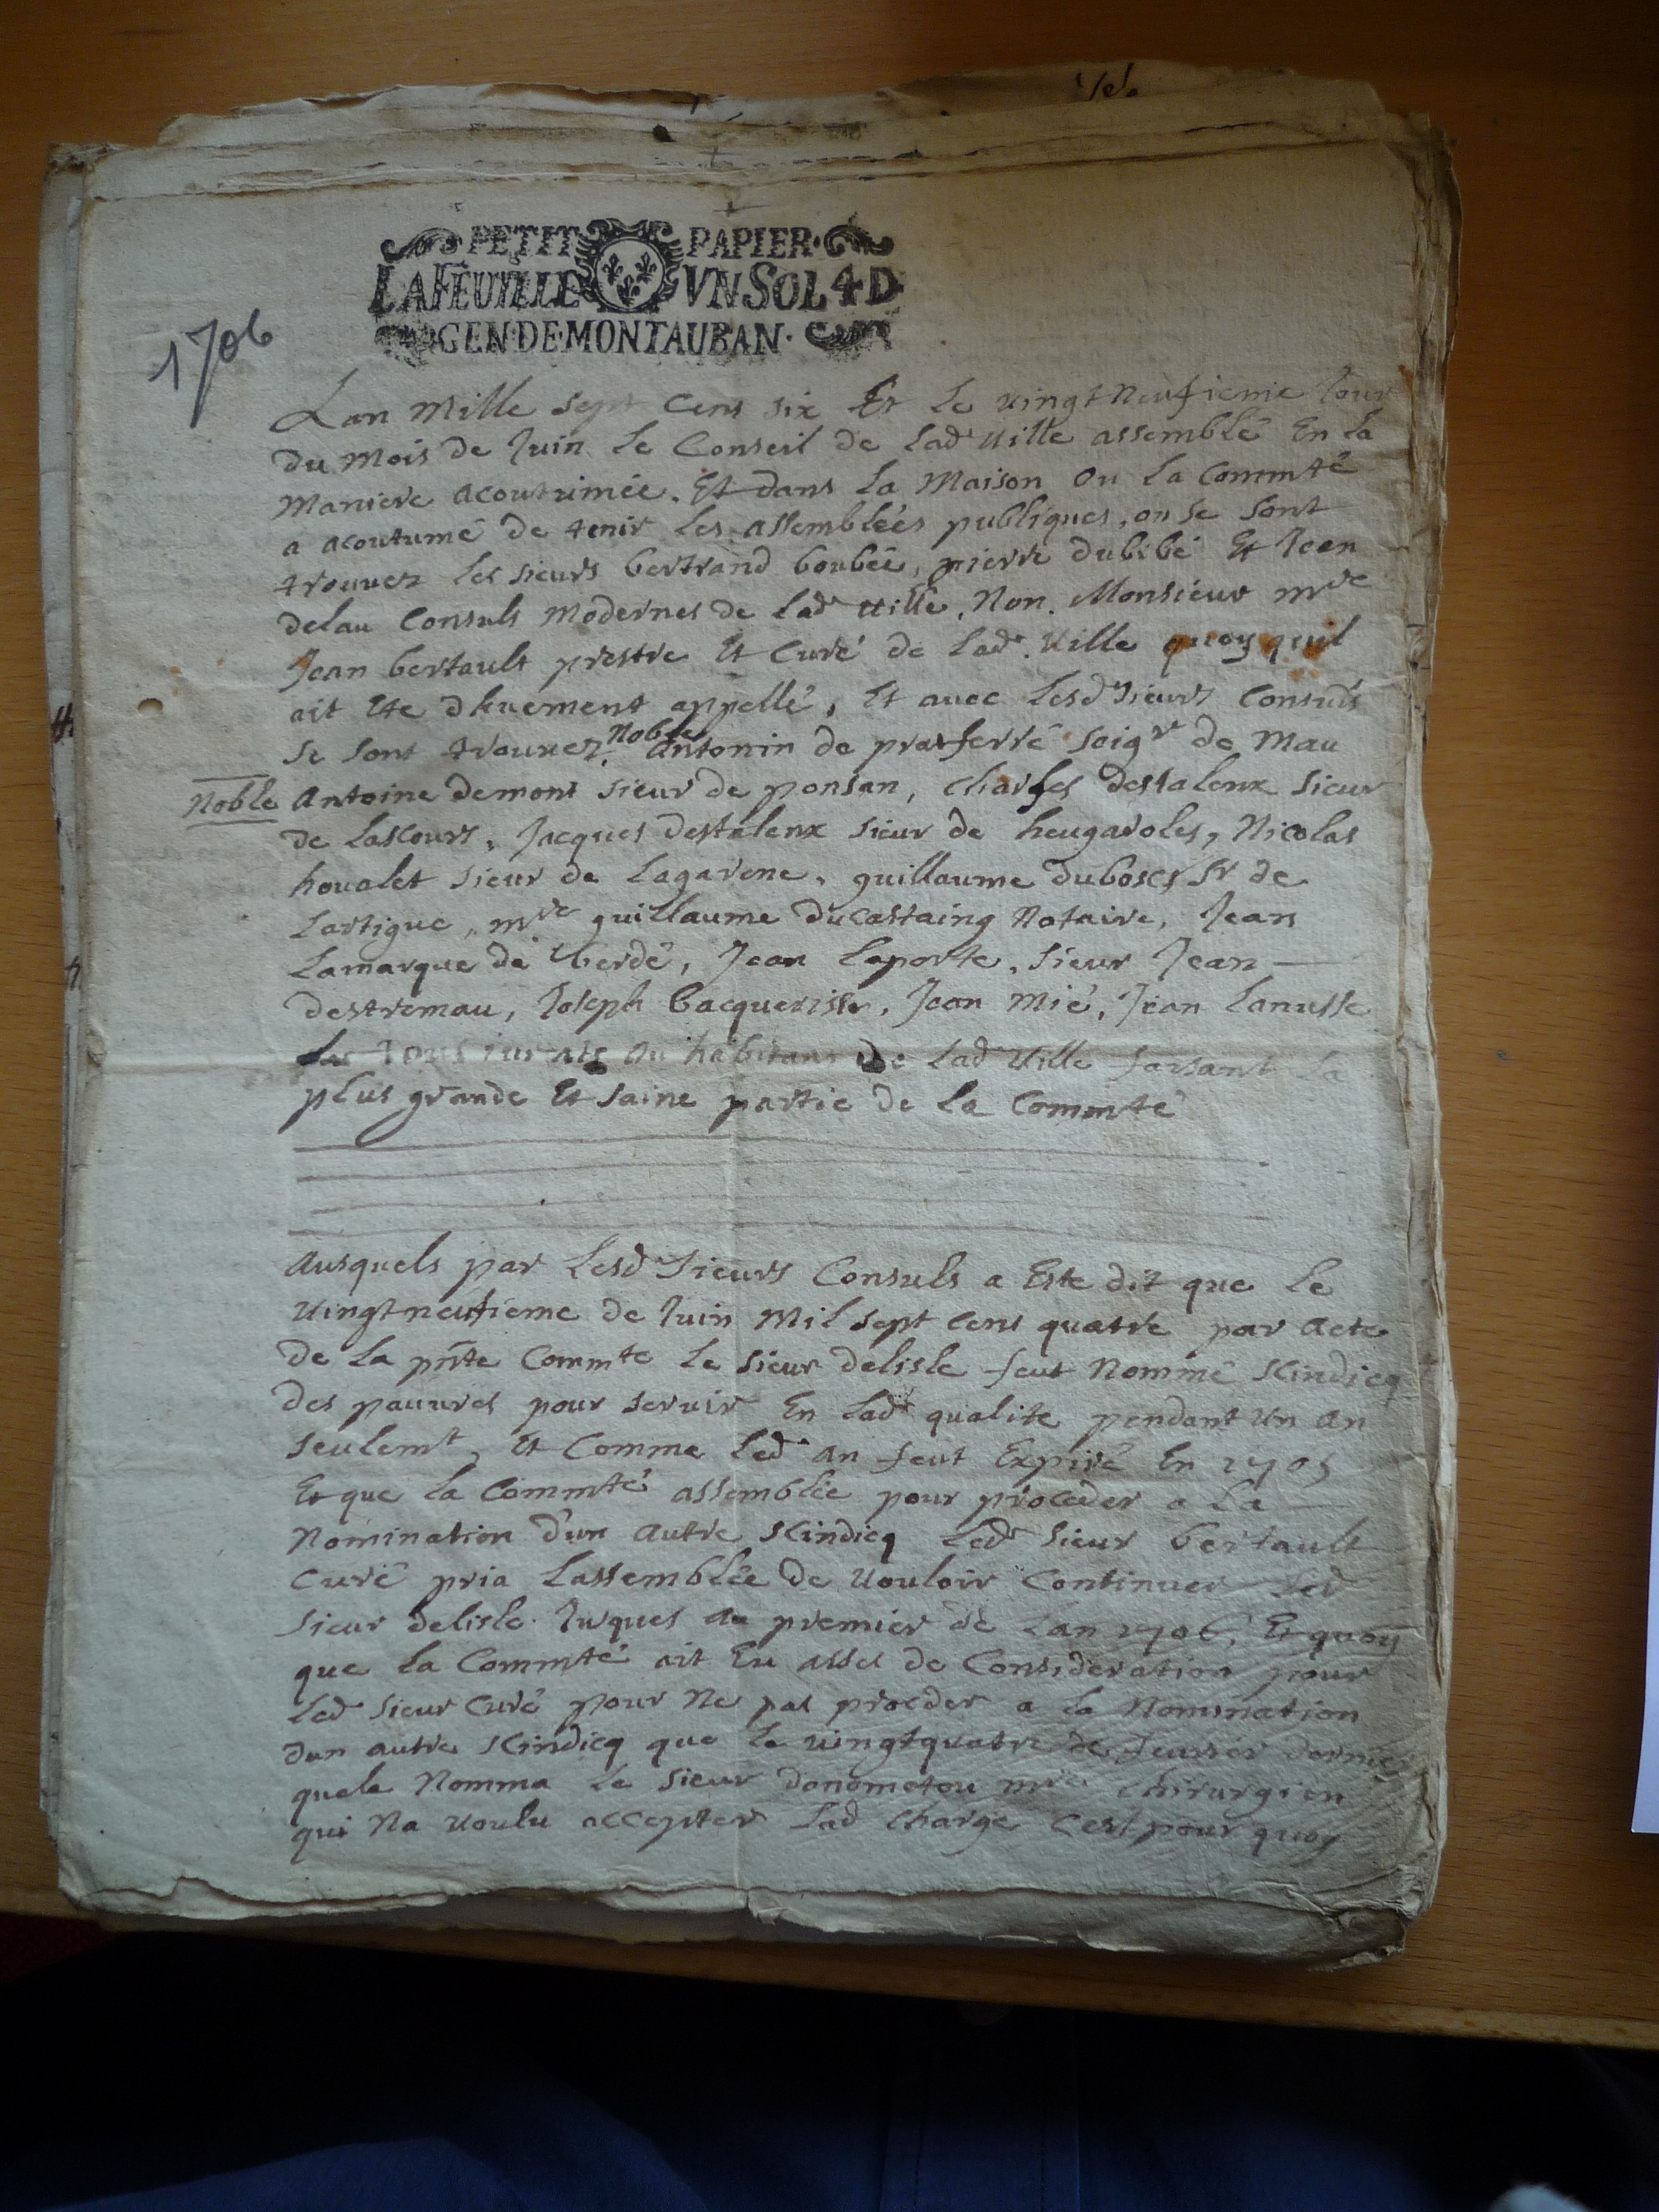 PETIT PAPIER
LA FEUILLE VN SOL 4 D
GEN·DE·MONTAUBAN·
1706
Lan Mille sept Cens six Et le uingt Neufieme Jour
du Mois de Juin le Conseil de Lad Uille assemblé En la
Maniere acoutumée. Et dans la Maison ou la Commté
a acoutumé de tenir les assemblées publiques, ou se sont
trouuez les sieurs bertrand boubée, pierre dubibé Et Jean
delau Consuls Modernes de Lad Uille, Non. Monsieur mre
Jean bertault prestre Et Curé de Lad. Uille quoy quil
ait Ete dhuement appellé, Et auec Lesd Sieurs Consuls
se sont trouuez. Noble Antonin de pratferré seigr de Mau
Noble Antoine demont sieur de ponsan, Charles destalenx sieur
de Lascours, Jacques destalenx sieur de heugaroles, Nicolas
houalet sieur de Lagarene, guillaume duboscq Sr de
Lartigue, mre guillaume ducastaing Notaire, Jean
Lamarque de berdé, Jean Laporte, sieur Jean
destremau, Joseph bacquerisse, Jean Mié, Jean Lanusse
tous jurats ou habitans De Lad Uille faisant La
plus grande Et saine partie de La Commté
Ausquels par Lesd Sieurs Consuls a Este dit que Le
uingt neufieme de Juin Mil sept Cens quatre par Acte
de La pnte Commte Le sieur delisle feut Nommé scindicq
des pauures pour seruir En Lad qualité pendant Un an
seulemt, Et Comme Led an feut Expiré En 1705
Et que La Commté assemblée pour proceder a La
Nomination d'un Autre scindicq Led Sieur bertault
Curé pria Lassemblée de Uouloir Continuer Led
Sieur delisle Juques au premier de Lan 1706, Et quoy
que La Commté ait Eu asses de Consideration pour
Led Sieur Curé pour Ne pas proceder a La Nomination
dun autre scindicq que Le uingt quatre de feurier dernier
quele Nomma Le Sieur mre Chirurgien
qui Na uoulu accepter Lad Charge Cest pour quoy